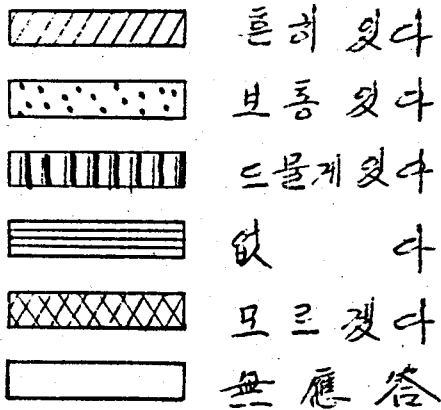 흔히 있다
보통 있다
드물게 있다
없 다
모르겠다
無應答